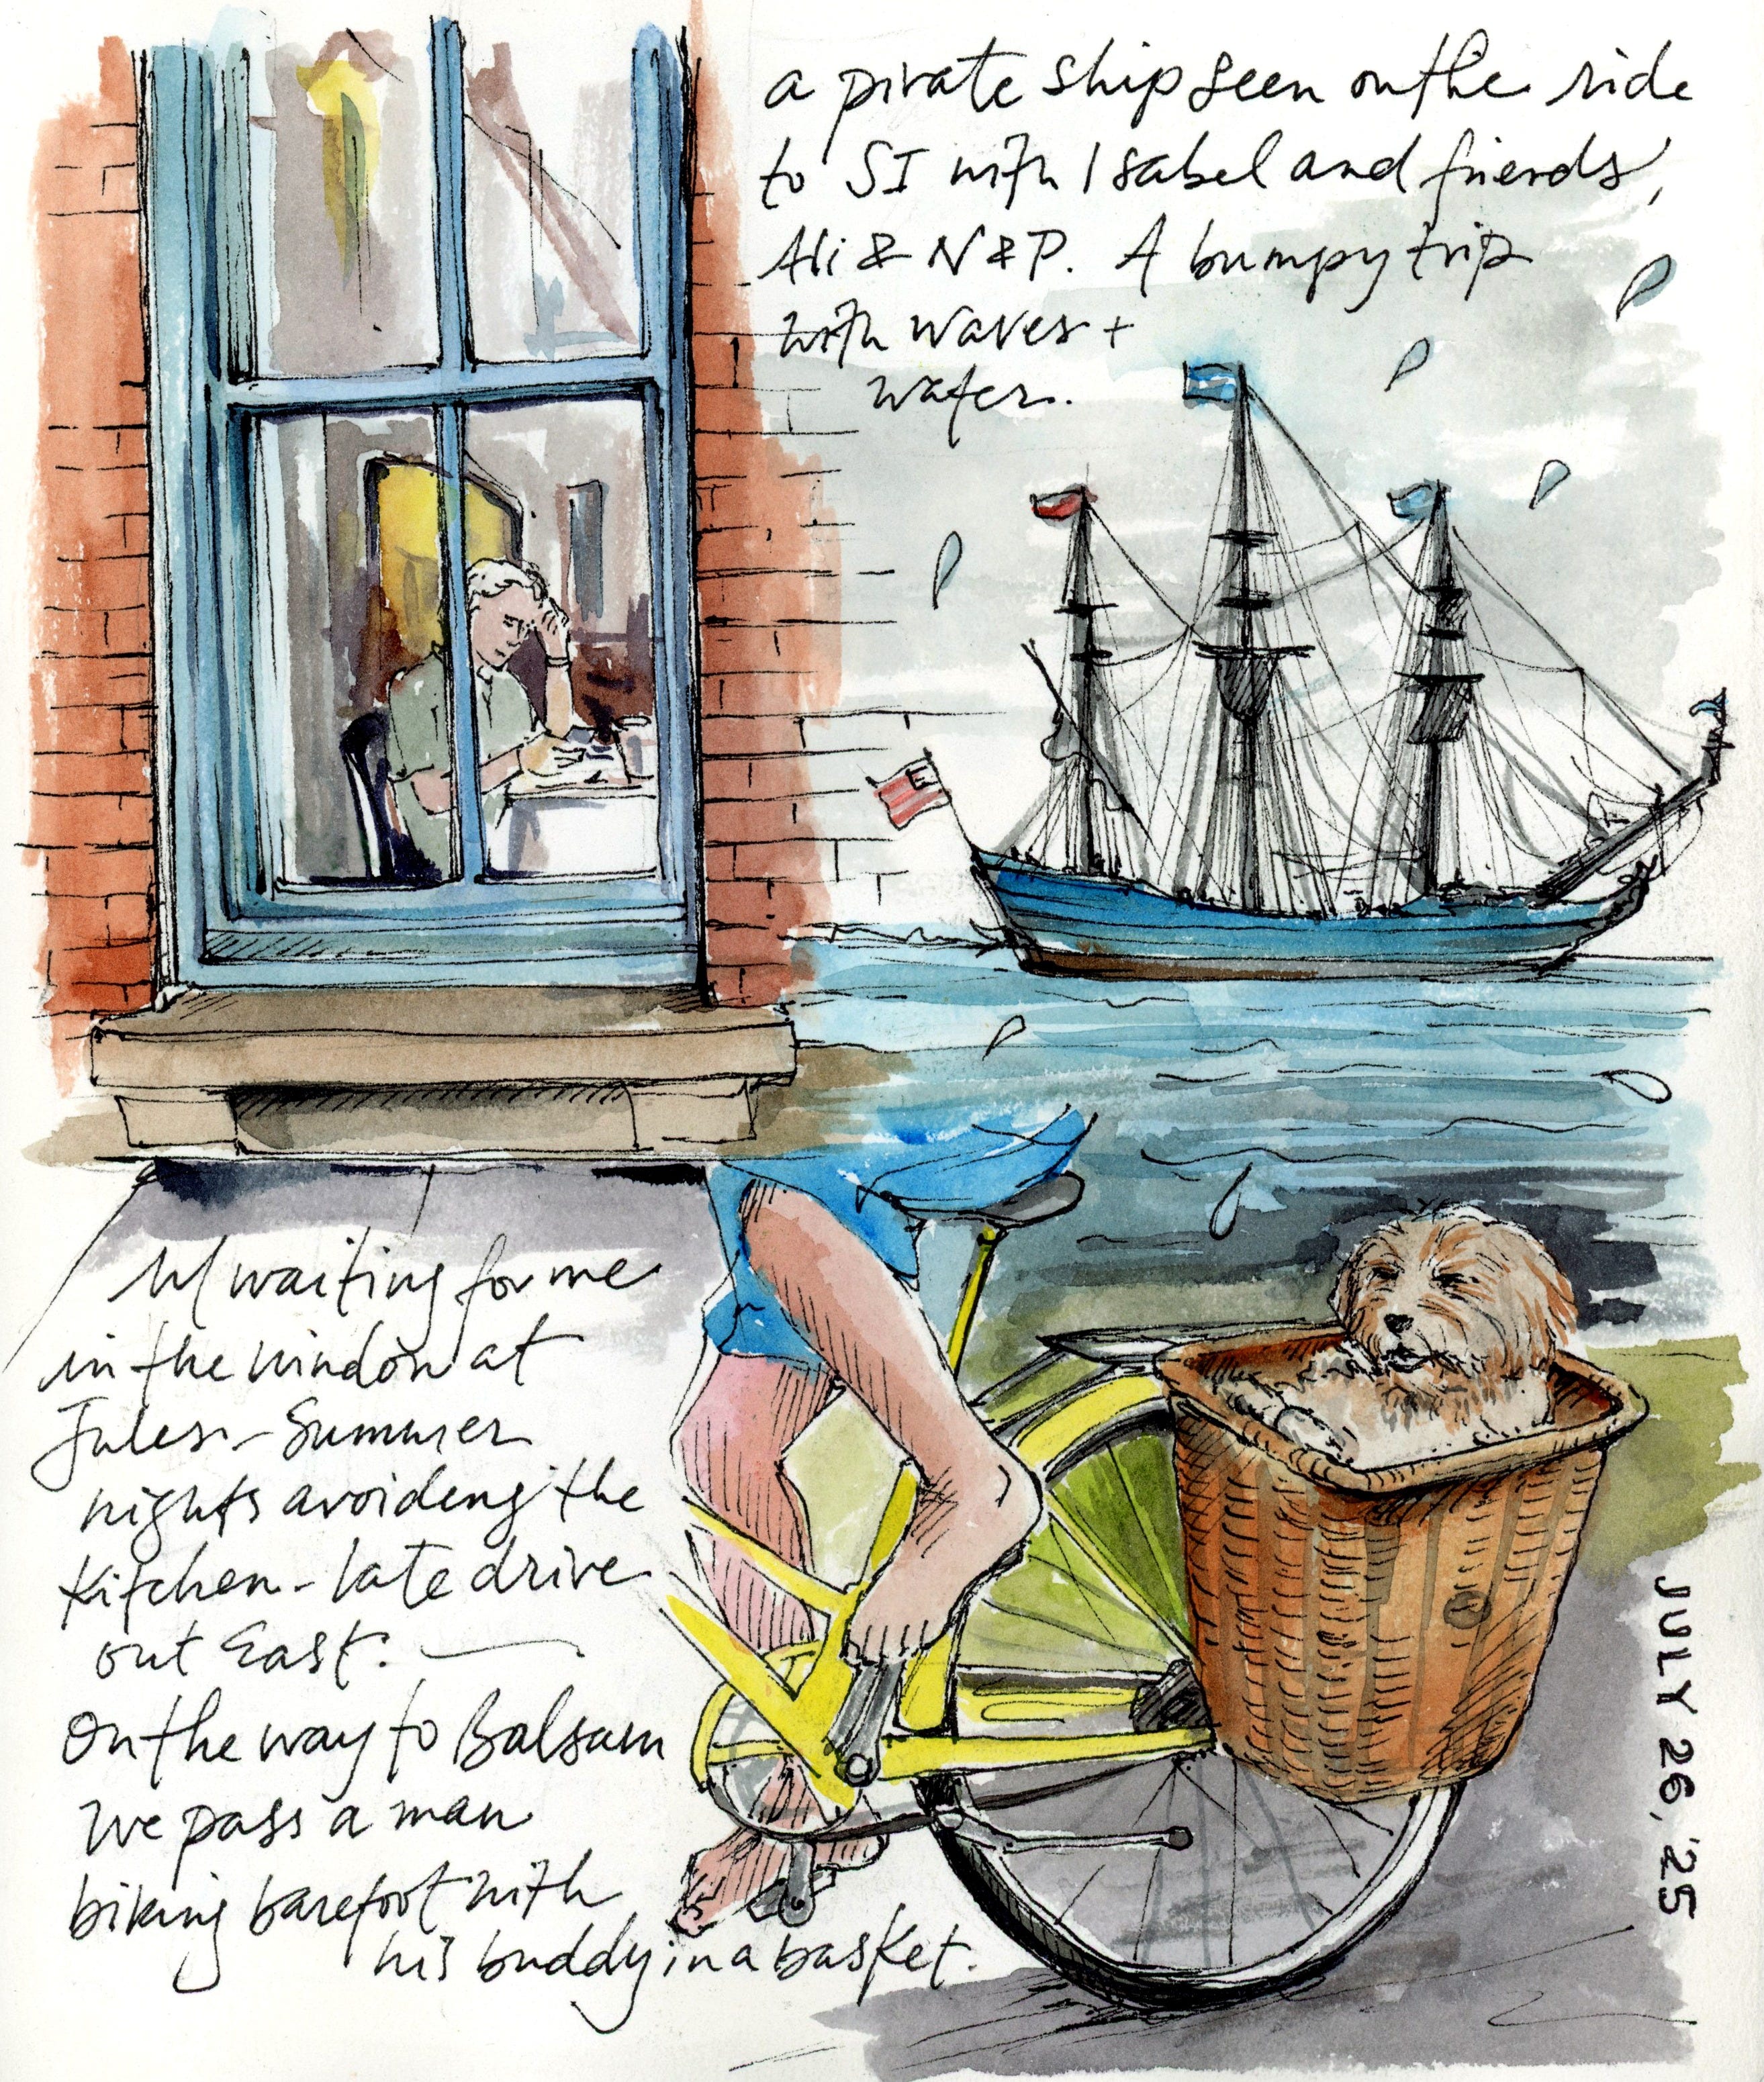 a pirate ship seen on the ride
to SI with Isabel and friends,
Ali & N & P. A bumpy trip
with waves +
water.
M waiting for me
in the window at
Jules - Summer
nights avoideng the
Kitchen - late drive
out East.
On the way to Balsam
we pass a man
biking barefoot with
his buddy in a basket.
JULY 26, '25